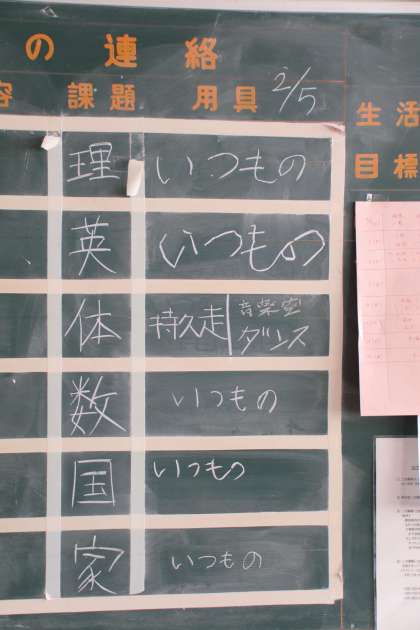 の連絡
容 課題 用具 2/5
理 いつもの
英 いつもの
体 持久走 音楽室
ダンス
数 いつもの
国 いつもの
家 いつもの
生活
目標